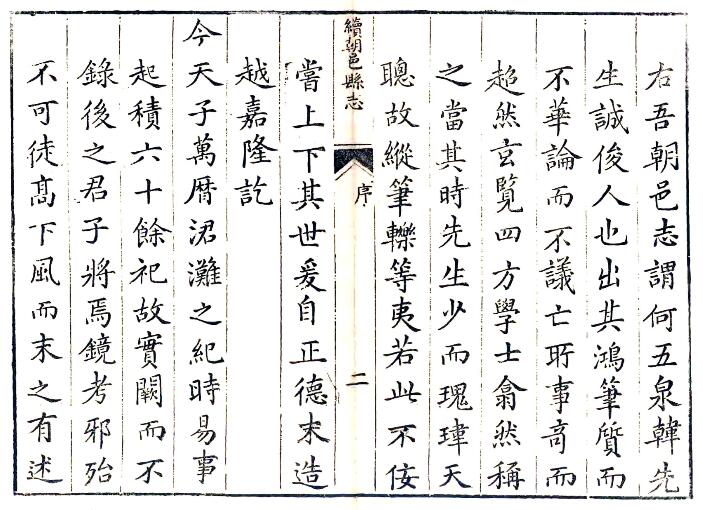 右吾朝邑志謂何五泉韓先
生誠俊人也出其鴻筆質而
不華論而不議亡所事奇而
超然玄覽四方學士翕然稱
之當其時先生少而瑰瑋天
聰故縱筆轢等夷若此不佞
續朝邑縣志
序
二
嘗上下其世爰自正德末造
越嘉隆訖
今天子萬曆涒灘之紀時易事
起積六十餘祀故實闕而不
錄後之君子將焉鏡考邪殆
不可徒髙下風而末之有述